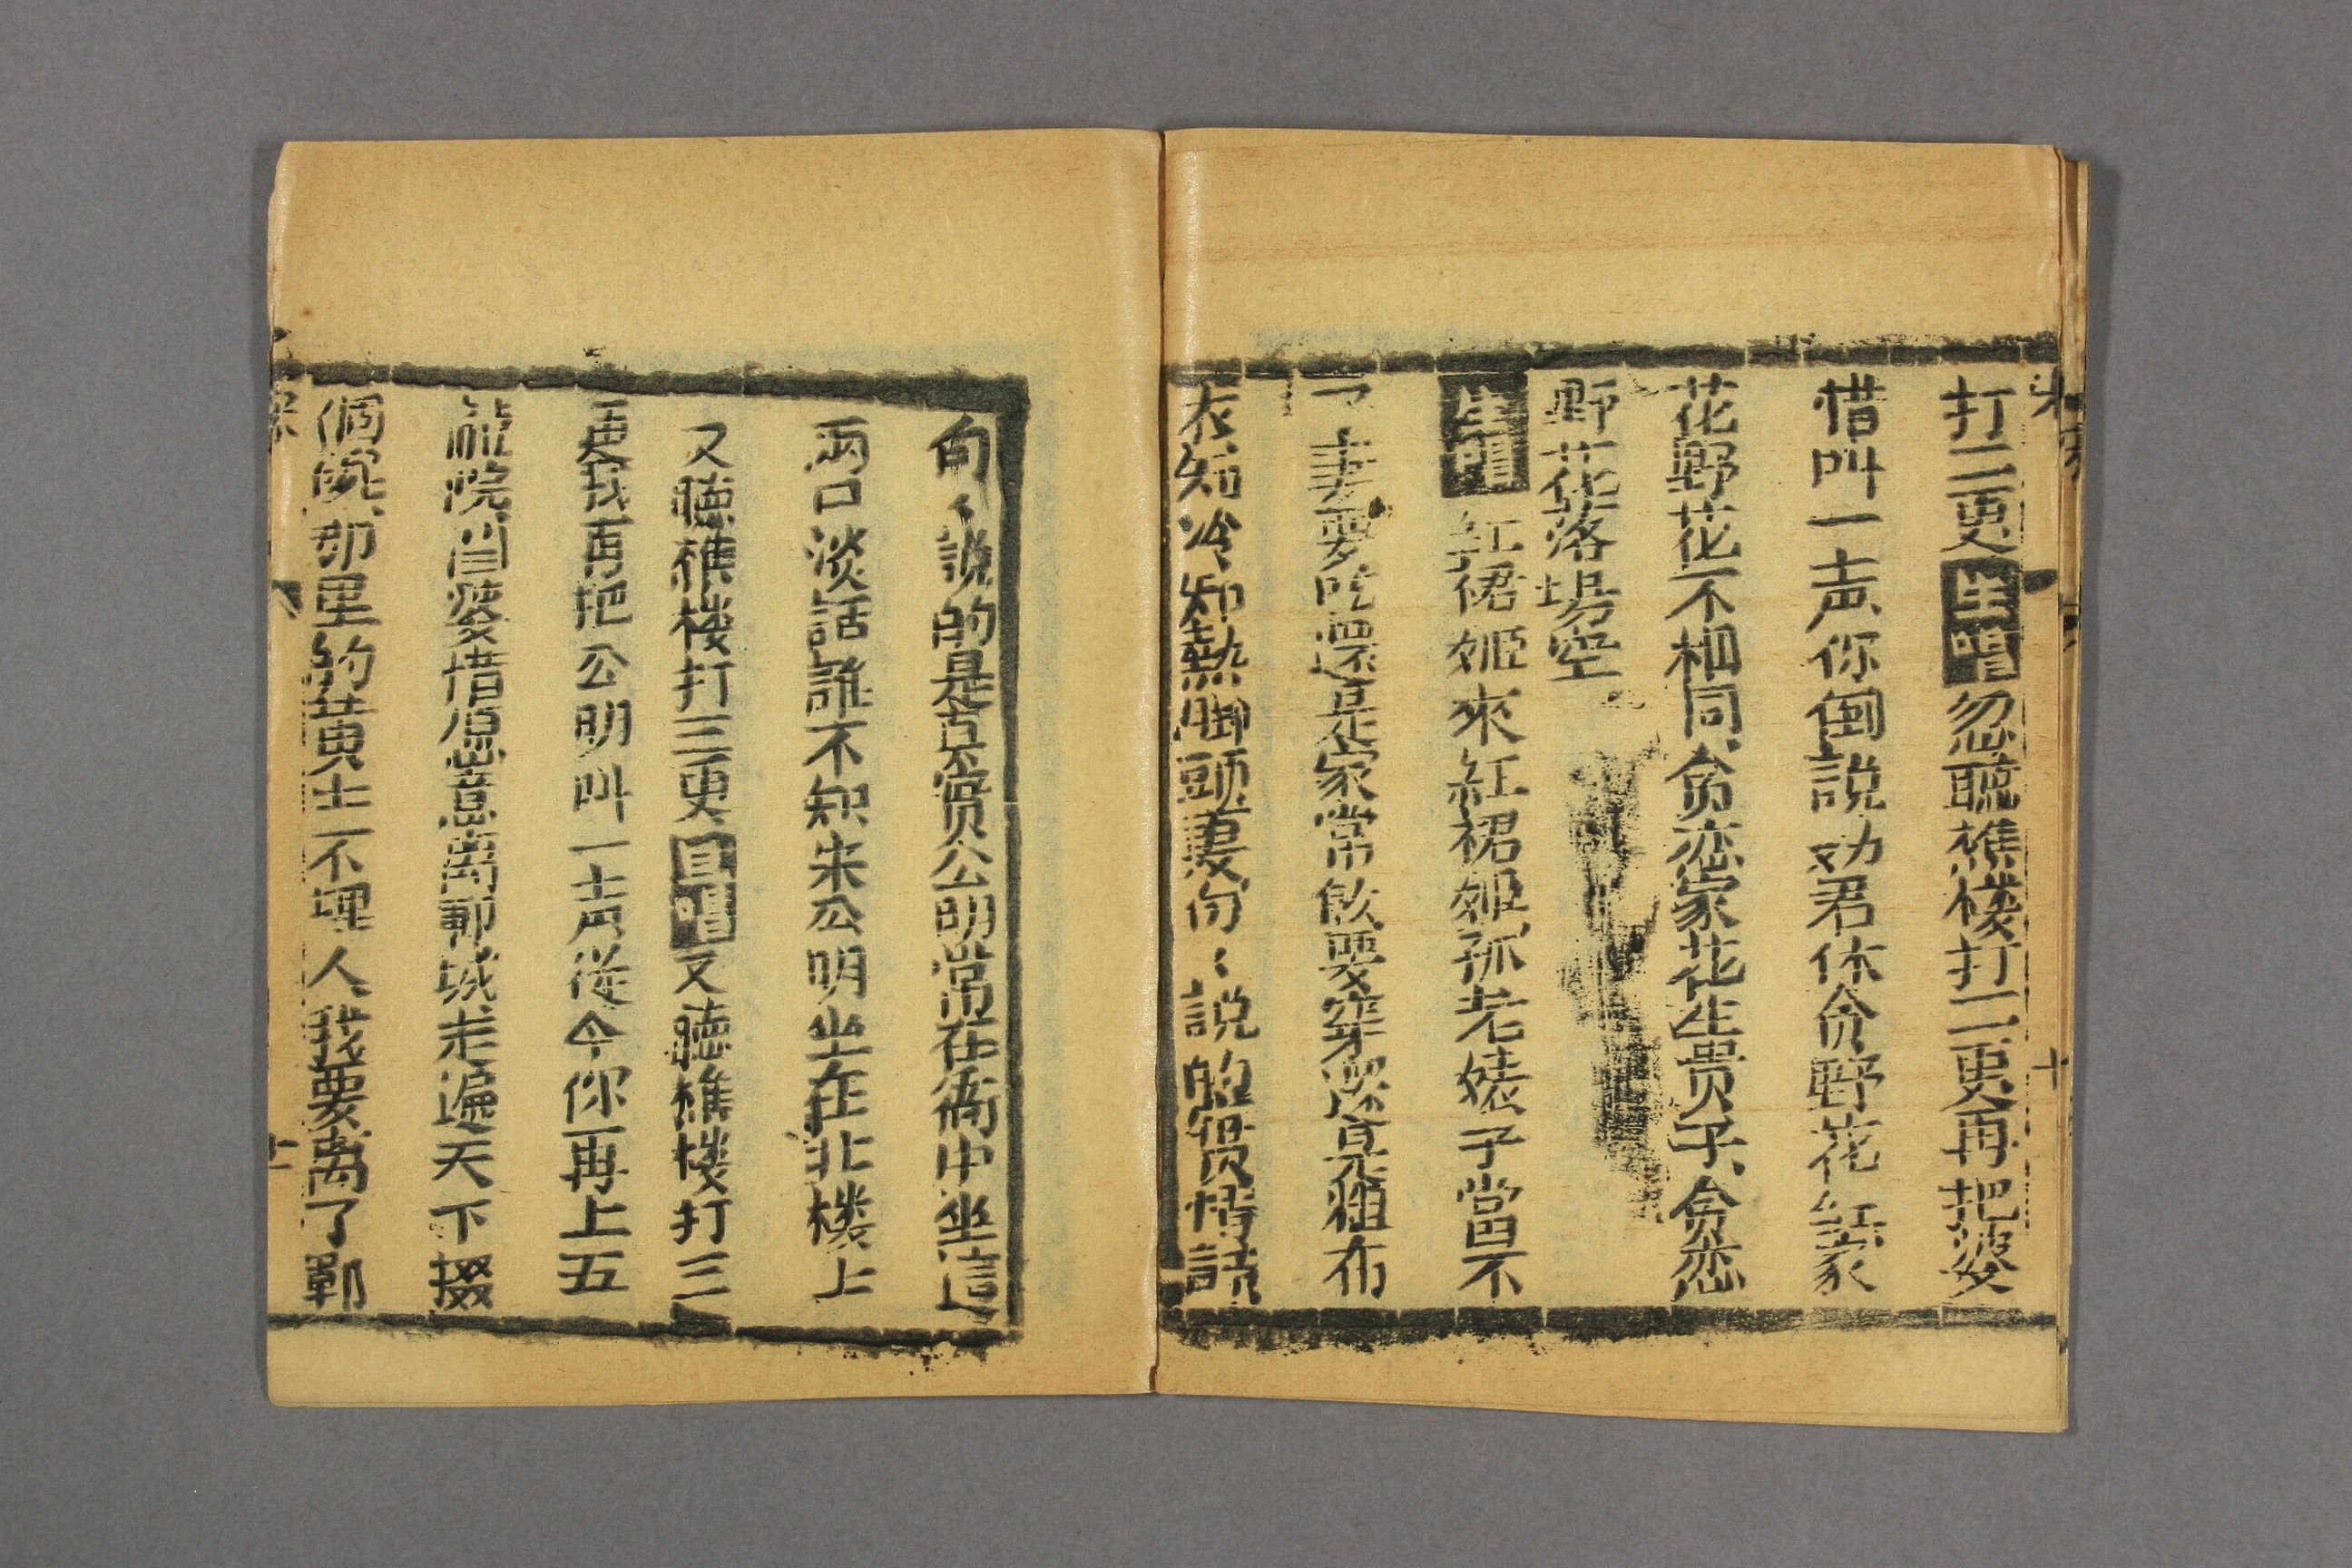 打二更生唱忽聽樵楼打二更再把婆
惜叫一声你倒說劝君休贪野花紅家
花野花不相同贪恋家花生贵子贪恋
野花落場空
生唱紅裙姬來紅裙姬孤老婊子當不
了妻要吃還是家常飯要穿還是粗布
衣知冷知熱脚頭妻句〻說的實情話
句〻說的是真實公明常在衙中坐這
兩口淡話誰不知宋公明坐在北楼上
又聽樵楼打三更旦唱又聽樵楼打三
更我再把公明叫一声從今你再上五
龍院
城走遍天下
那里的黄土不埋人我要离了鄆